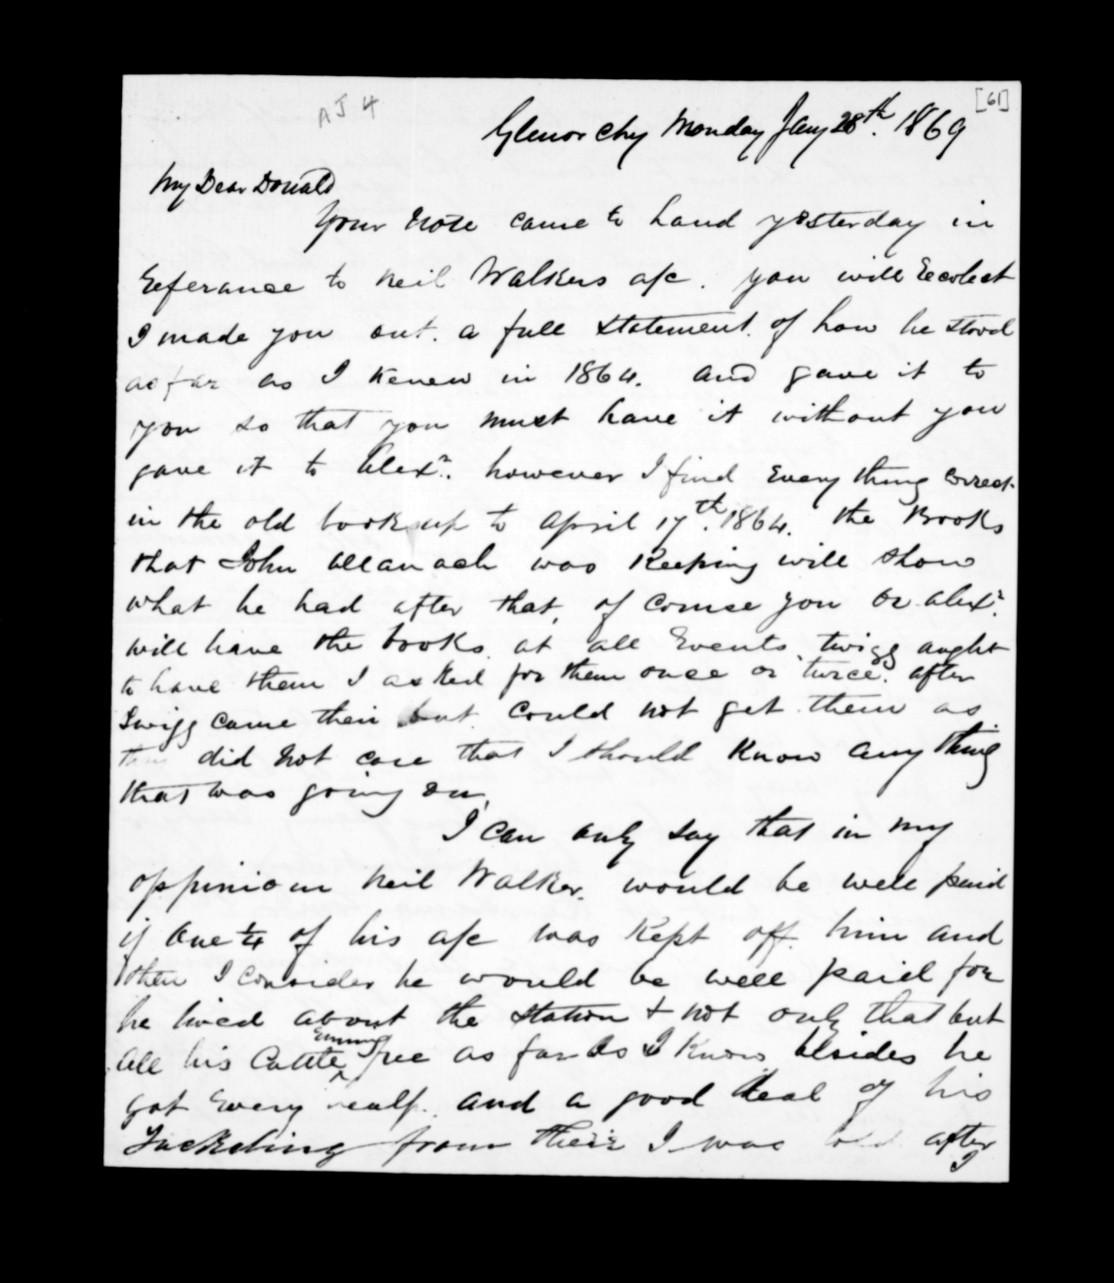 [61]
AJ 4
Glenorchy Monday Jany 28th. 1869
My Dear Donald
Your note came to hand yesterday in
Referance to Neil Walkers a/c. you will Recolect
I made you out. a full statement. of how he stood
as far as I Kenew in 1864. and gave it to
you so that you must have it without you
gave it to Alexr. however I find Every thing correct
in the old book up to April 17th. 1864. the Books
that John Allanach was Keeping will show
what he had after that, of course you or Alexr.
will have the books. at all Events twigg aught
to have them I asked for them once or twice. after
Twigg came their but could not get them as
they did not care that I should Know any thing
that was going on.
I can only say that in my
oppinion Neil Walker would be well paid
if one 1/4 of his a/c was Kept off him and
then I consider he would be well paid for
he lived about the station & not only that but
Runing
all his Cattle ^ free as far as I Know besides he
got Every and a good deal of his
from their I was told after
I